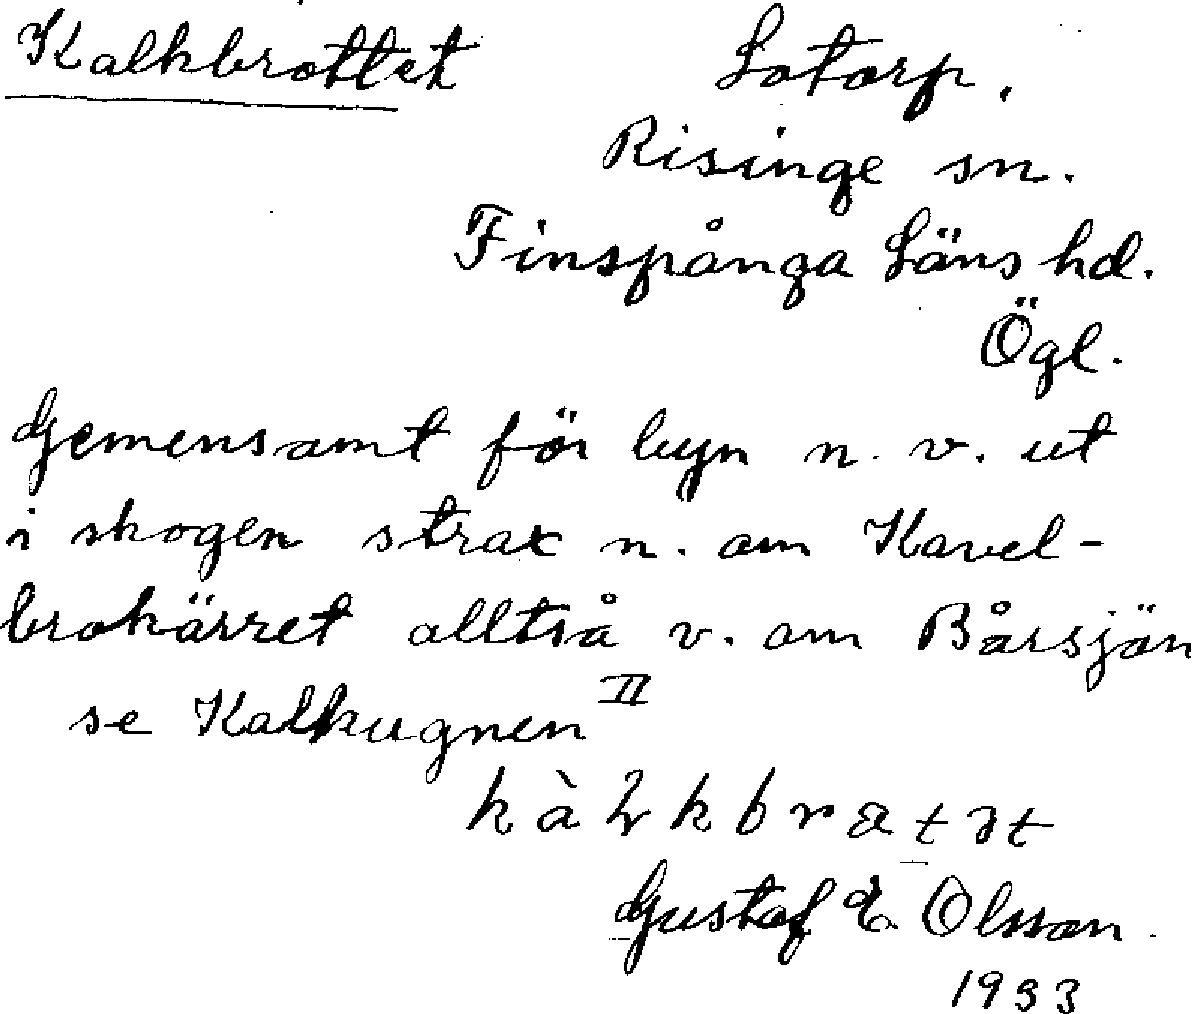 Kalkbrottet Lotorp.
Risinge sn.
Finspånga Läns hd.
Ögl.
Gemensamt för byn n. v. ut
i skogen strax n. om Kavel-
brokärret alltså v. om Bårsjön
se Kalkugnen II
Gustaf E. Olsson.
1933